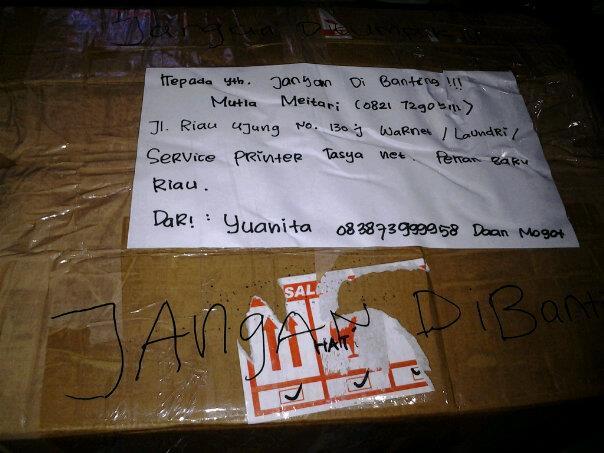 JANGAN
Kepada yth. Jangan Di Banteng !!!
Mutia Meitari (0821
Jl. Riau ujung No. 130 j WARNet / LAUNDRI /
SERVICE PRINTER Tasya net. PeKan BARU
RIAU.
DARI : Yuanita 083873999958 Daan Mogot
SAL
JANGAN DiBant
HATI